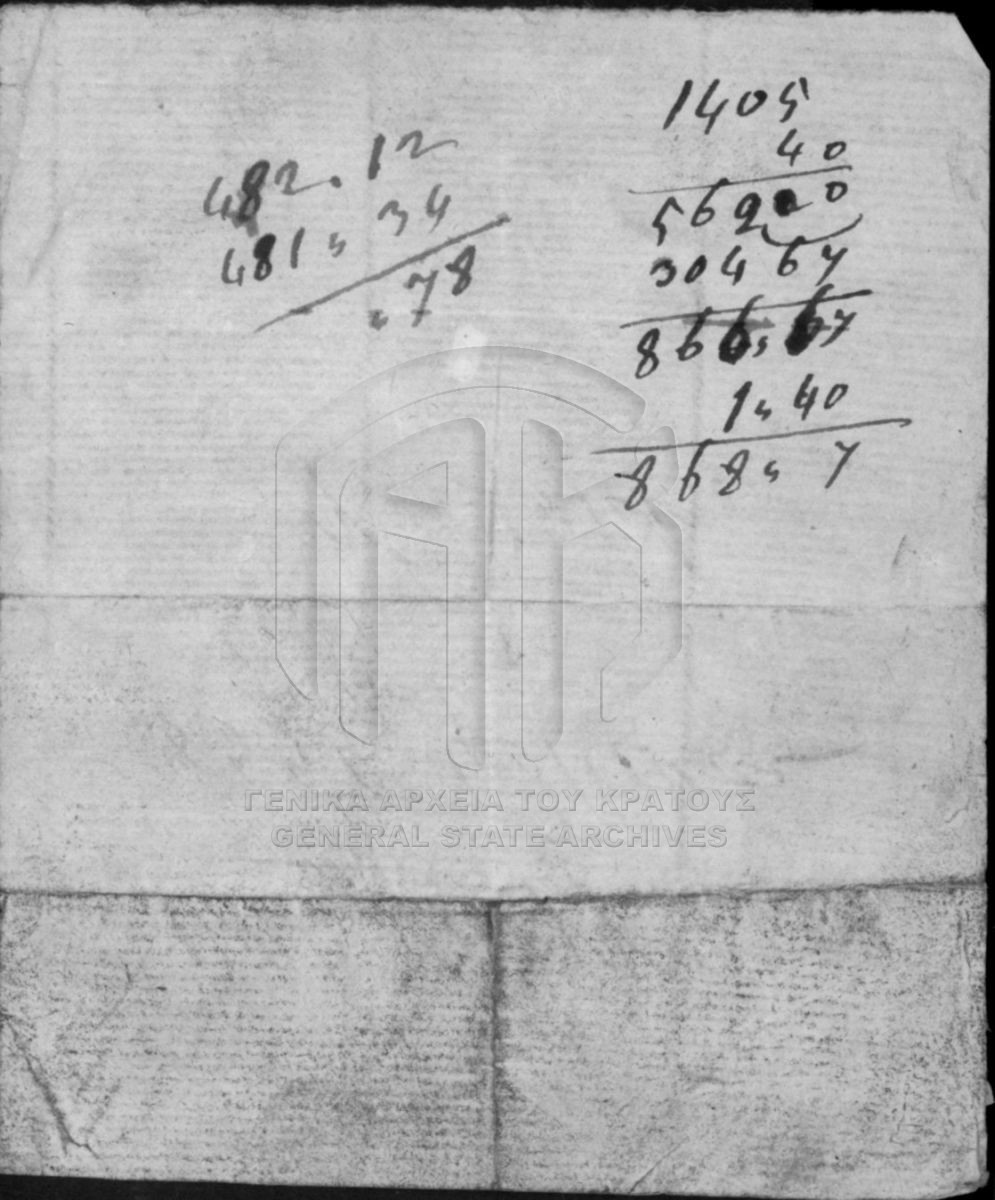 482. 12
481„ 34
„ 78
1405
40
56200
304 67
866„ 67
1„ 40
868„ 7
ΓΕΝΙΚΑ ΑΡΧΕΙΑ ΤΟΥ ΚΡΑΤΟΥΣ
GENERAL STATE ARCHIVES